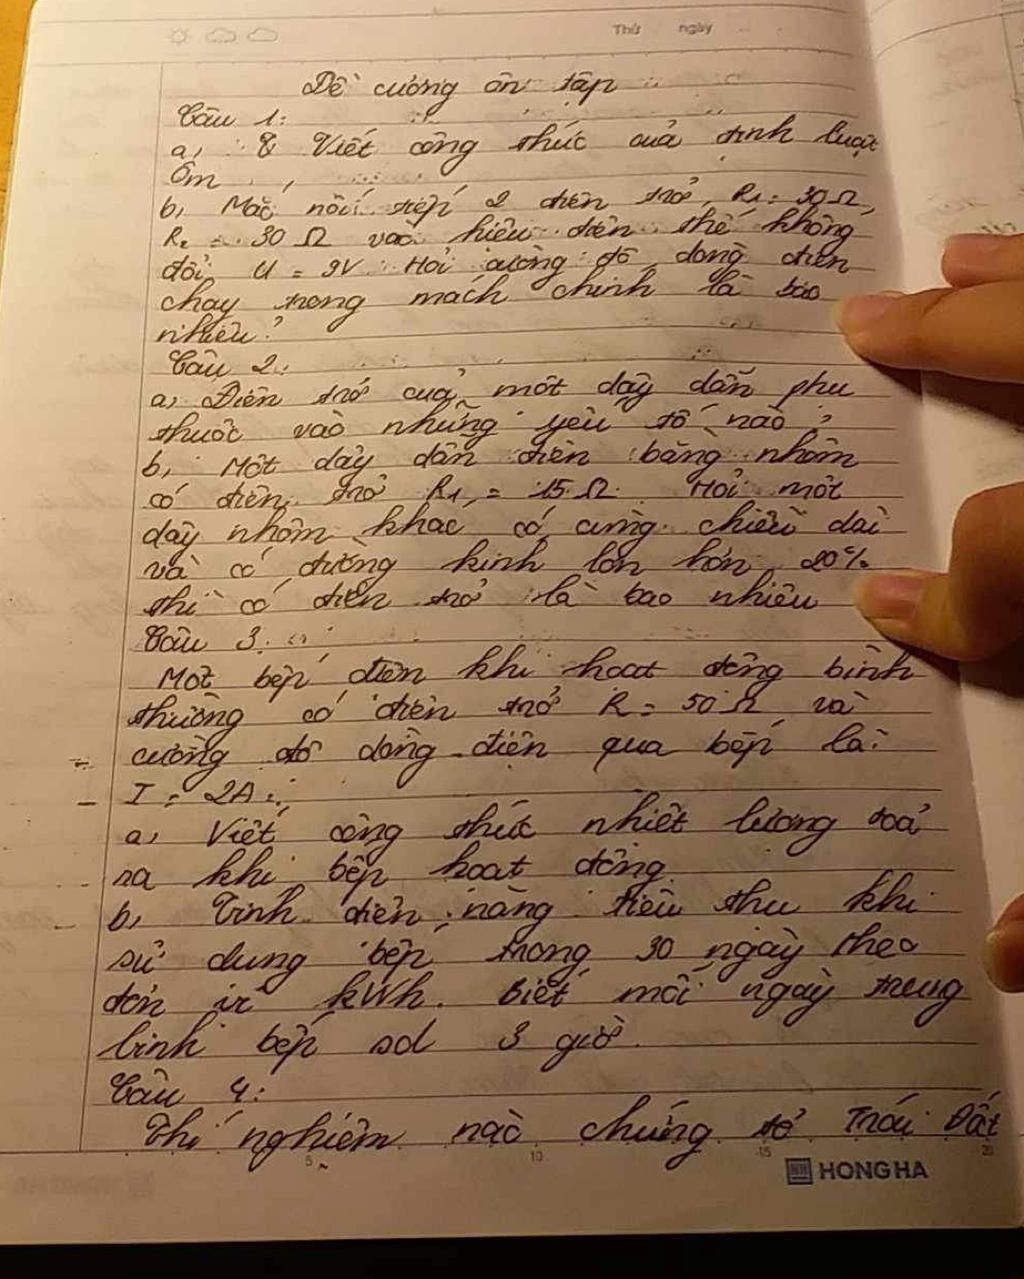 Thứ ngày
Đề cương ôn tập
Câu 1:
a, Viết công thức của định luật
Ôm
b, Mắc nối tiếp 2 điện trở, R₁ = 30Ω,
R₂ = 30Ω vào hiệu điện thế không
đổi U = 9V. Hỏi cường độ dòng điện
chạy trong mạch chính là bao
nhiêu?
Câu 2:
a, Điện trở của một dây dẫn phụ
thuộc vào những yếu tố nào?
b, Một dây dẫn điện bằng nhôm
có điện trở R₁ = 15Ω. Hỏi một
dây nhôm khác có cùng chiều dài
và có đường kính lớn hơn 20%
thì có điện trở là bao nhiêu
Câu 3:
Một bếp điện khi hoạt động bình
thường có điện trở R = 50Ω và
cường độ dòng điện qua bếp là:
I = 2A.
a, Viết công thức nhiệt lượng toả
ra khi bếp hoạt động.
b, Tính điện năng tiêu thụ khi
sử dụng bếp trong 30 ngày theo
đơn vị kWh. Biết mỗi ngày trung
bình bếp sd 3 giờ.
Câu 4:
Thí nghiệm nào chứng tỏ Trái Đất
5 10 15 20
HONG HA